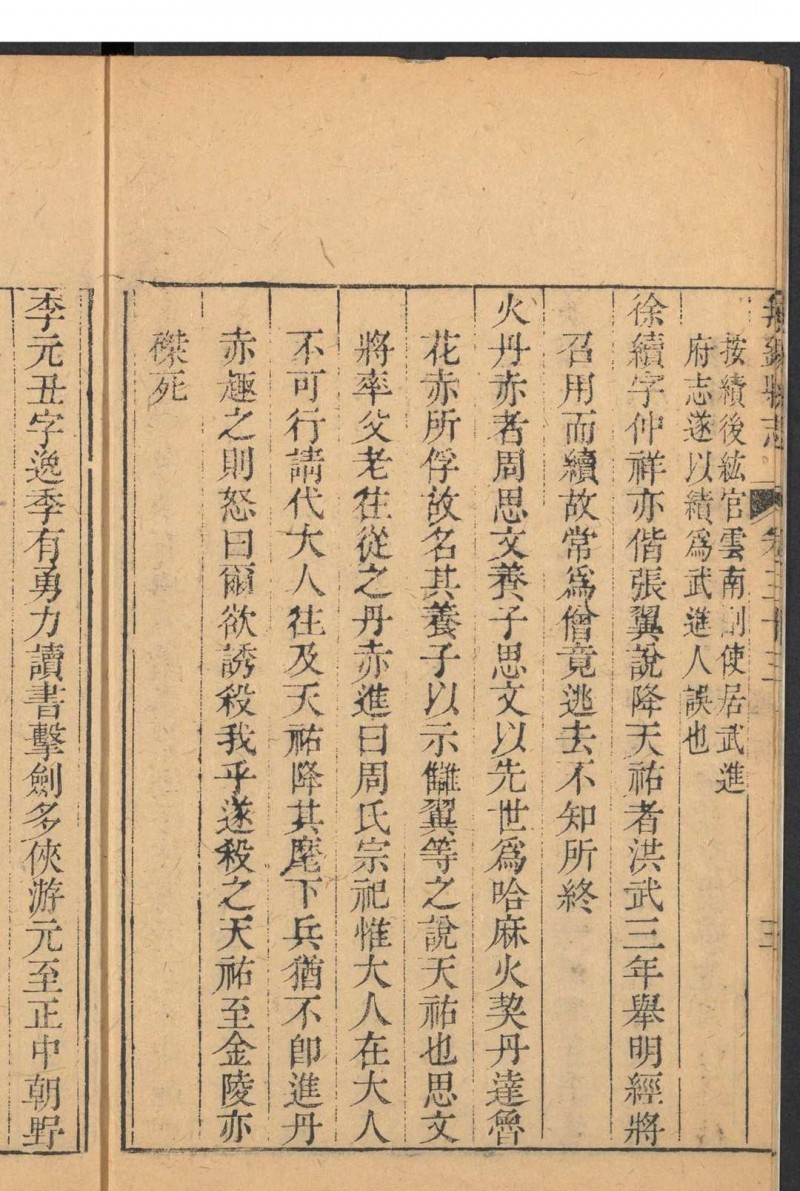 按續後紘官雲南副使居武進
府志遂以續爲武進人誤也
徐續字仲祥亦偕張翼說降天祐者洪武三年舉明經將
召用而續故常爲僧竟逃去不知所終
火丹赤者周思文養子思文以先世爲哈麻火契丹達魯
花赤所俘故名其養子以示讎翼等之說天祐也思文
將率父老往從之丹赤進曰周氏宗祀惟大人在大人
不可行請代大人往及天祐降其麾下兵猶不卽進丹
赤趣之則怒曰爾欲誘殺我乎遂殺之天祐至金陵亦
磔死
李元丑字逸季有勇力讀書擊劍多俠游元至正中朝野